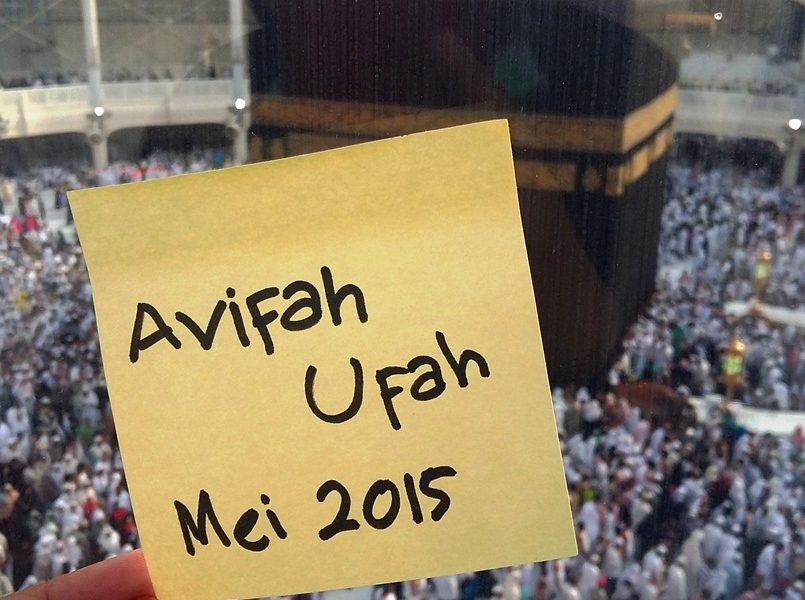 Avifah
Ufah
Mei 2015